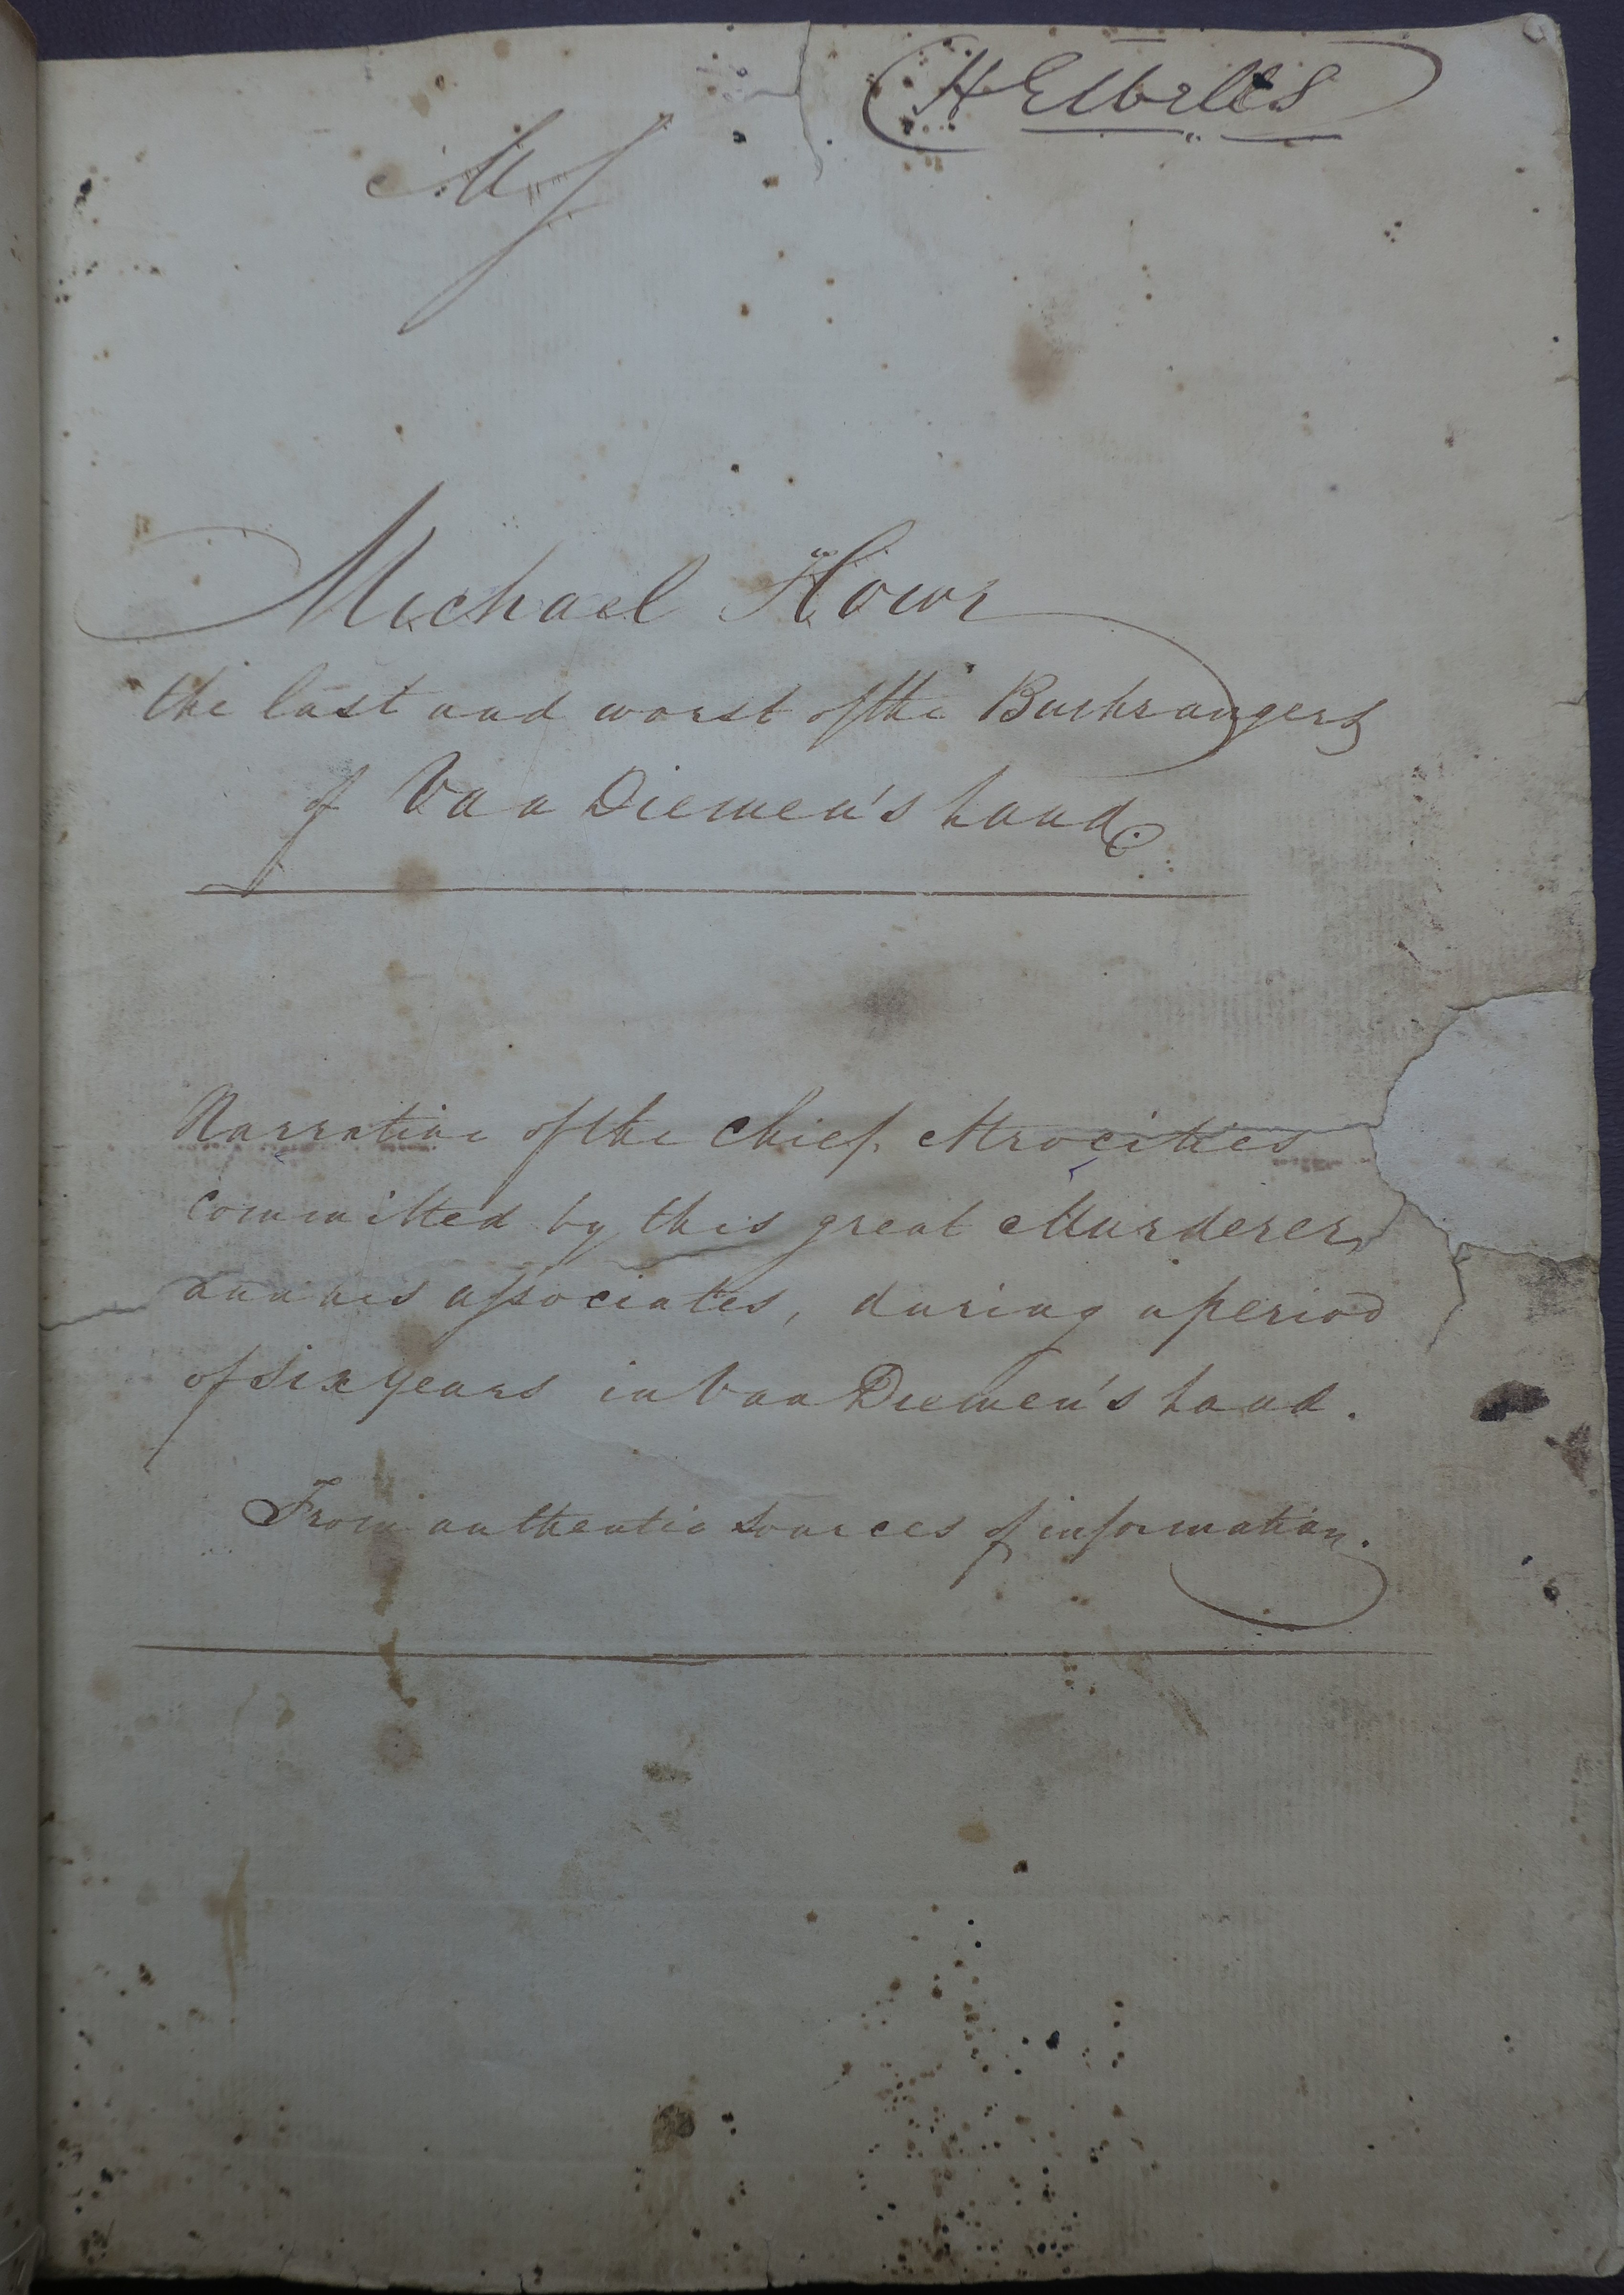 Michael Howe
the last and worst of the Bushrangers
of Van Diemen's Land.
Narrative of the Chief Atrocities
committed by this great Murderer
and his associates, during a period
of six years in Van Diemen's Land.
From authentic sources of information.